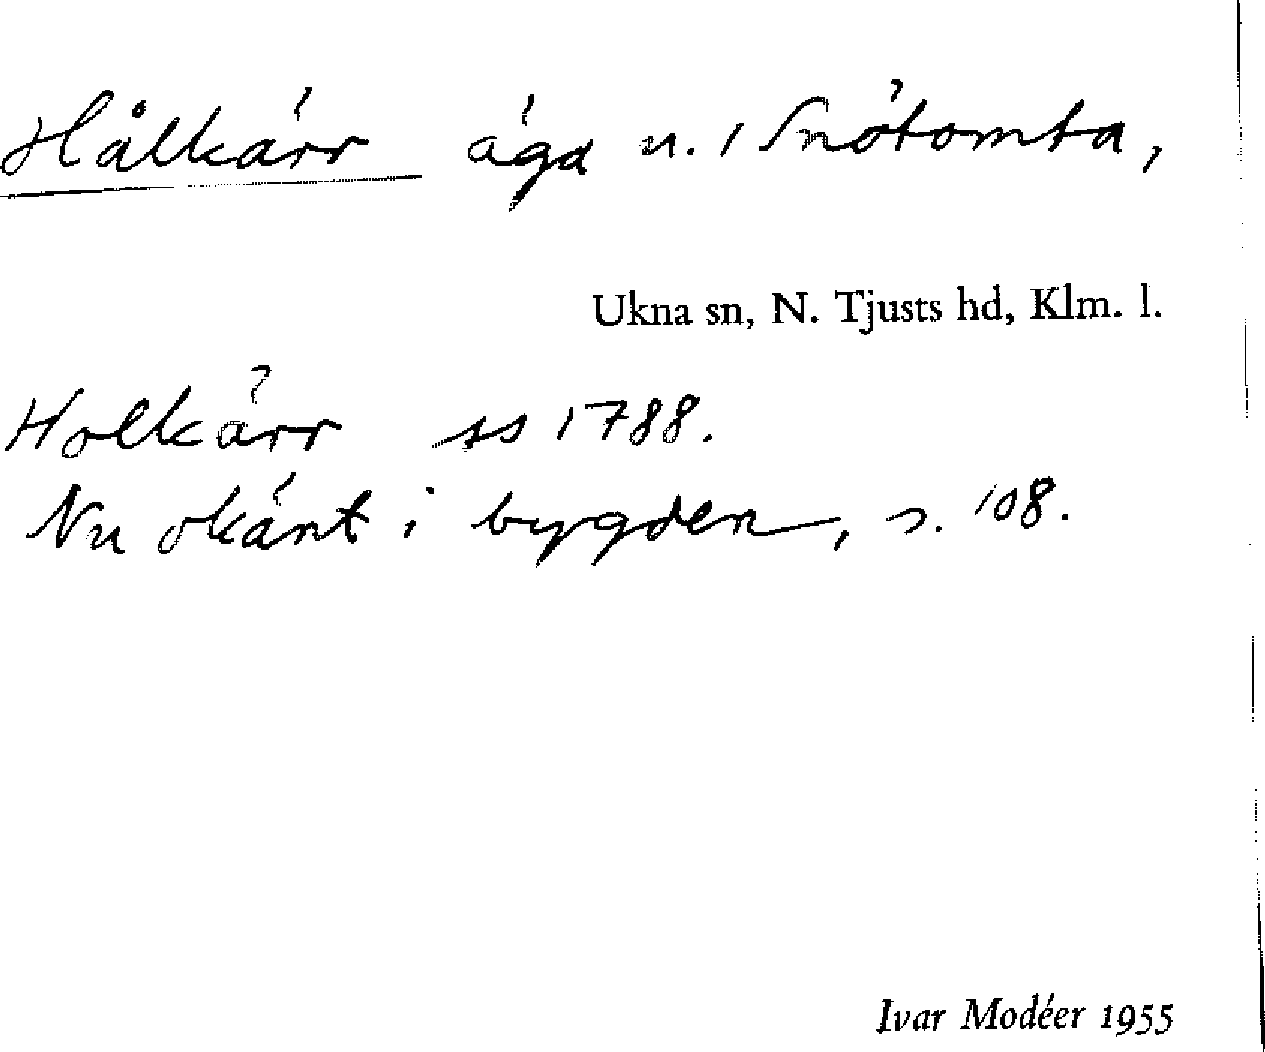 Hålkärr äga n. / Snötomta,
Ukna sn, N. Tjusts hd, Klm. l.
Holkärr ss 1788.
Nu okänt i bygden, s. 108.
Ivar Modéer 1955